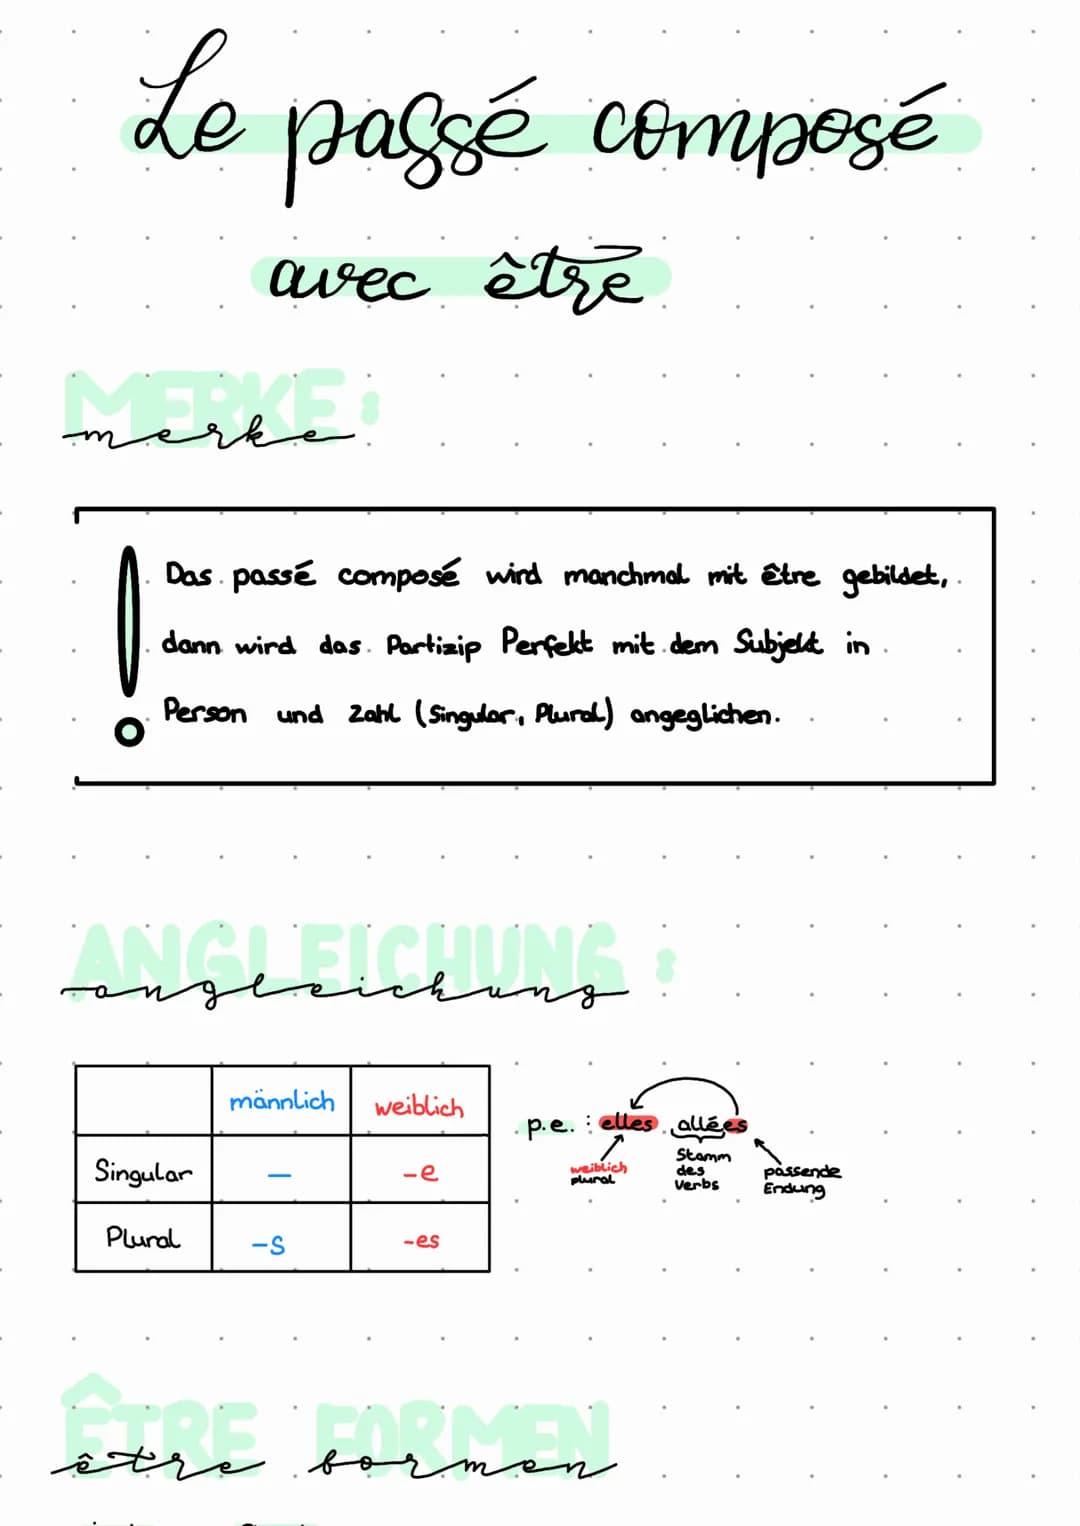 Le passé composé
avec être
MERKE:
merke
Das passé composé wird manchmal mit être gebildet,
dann wird das Partizip Perfekt mit dem Subjekt in
Person und Zahl (Singular, Plural) angeglichen.
ANGLEICHUNG:
angleichung
männlich weiblich
Singular – -e
Plural -s -es
p.e.: elles allées
weiblich plural
Stamm des Verbs
passende Endung
ÊTRE FORMEN
être formen